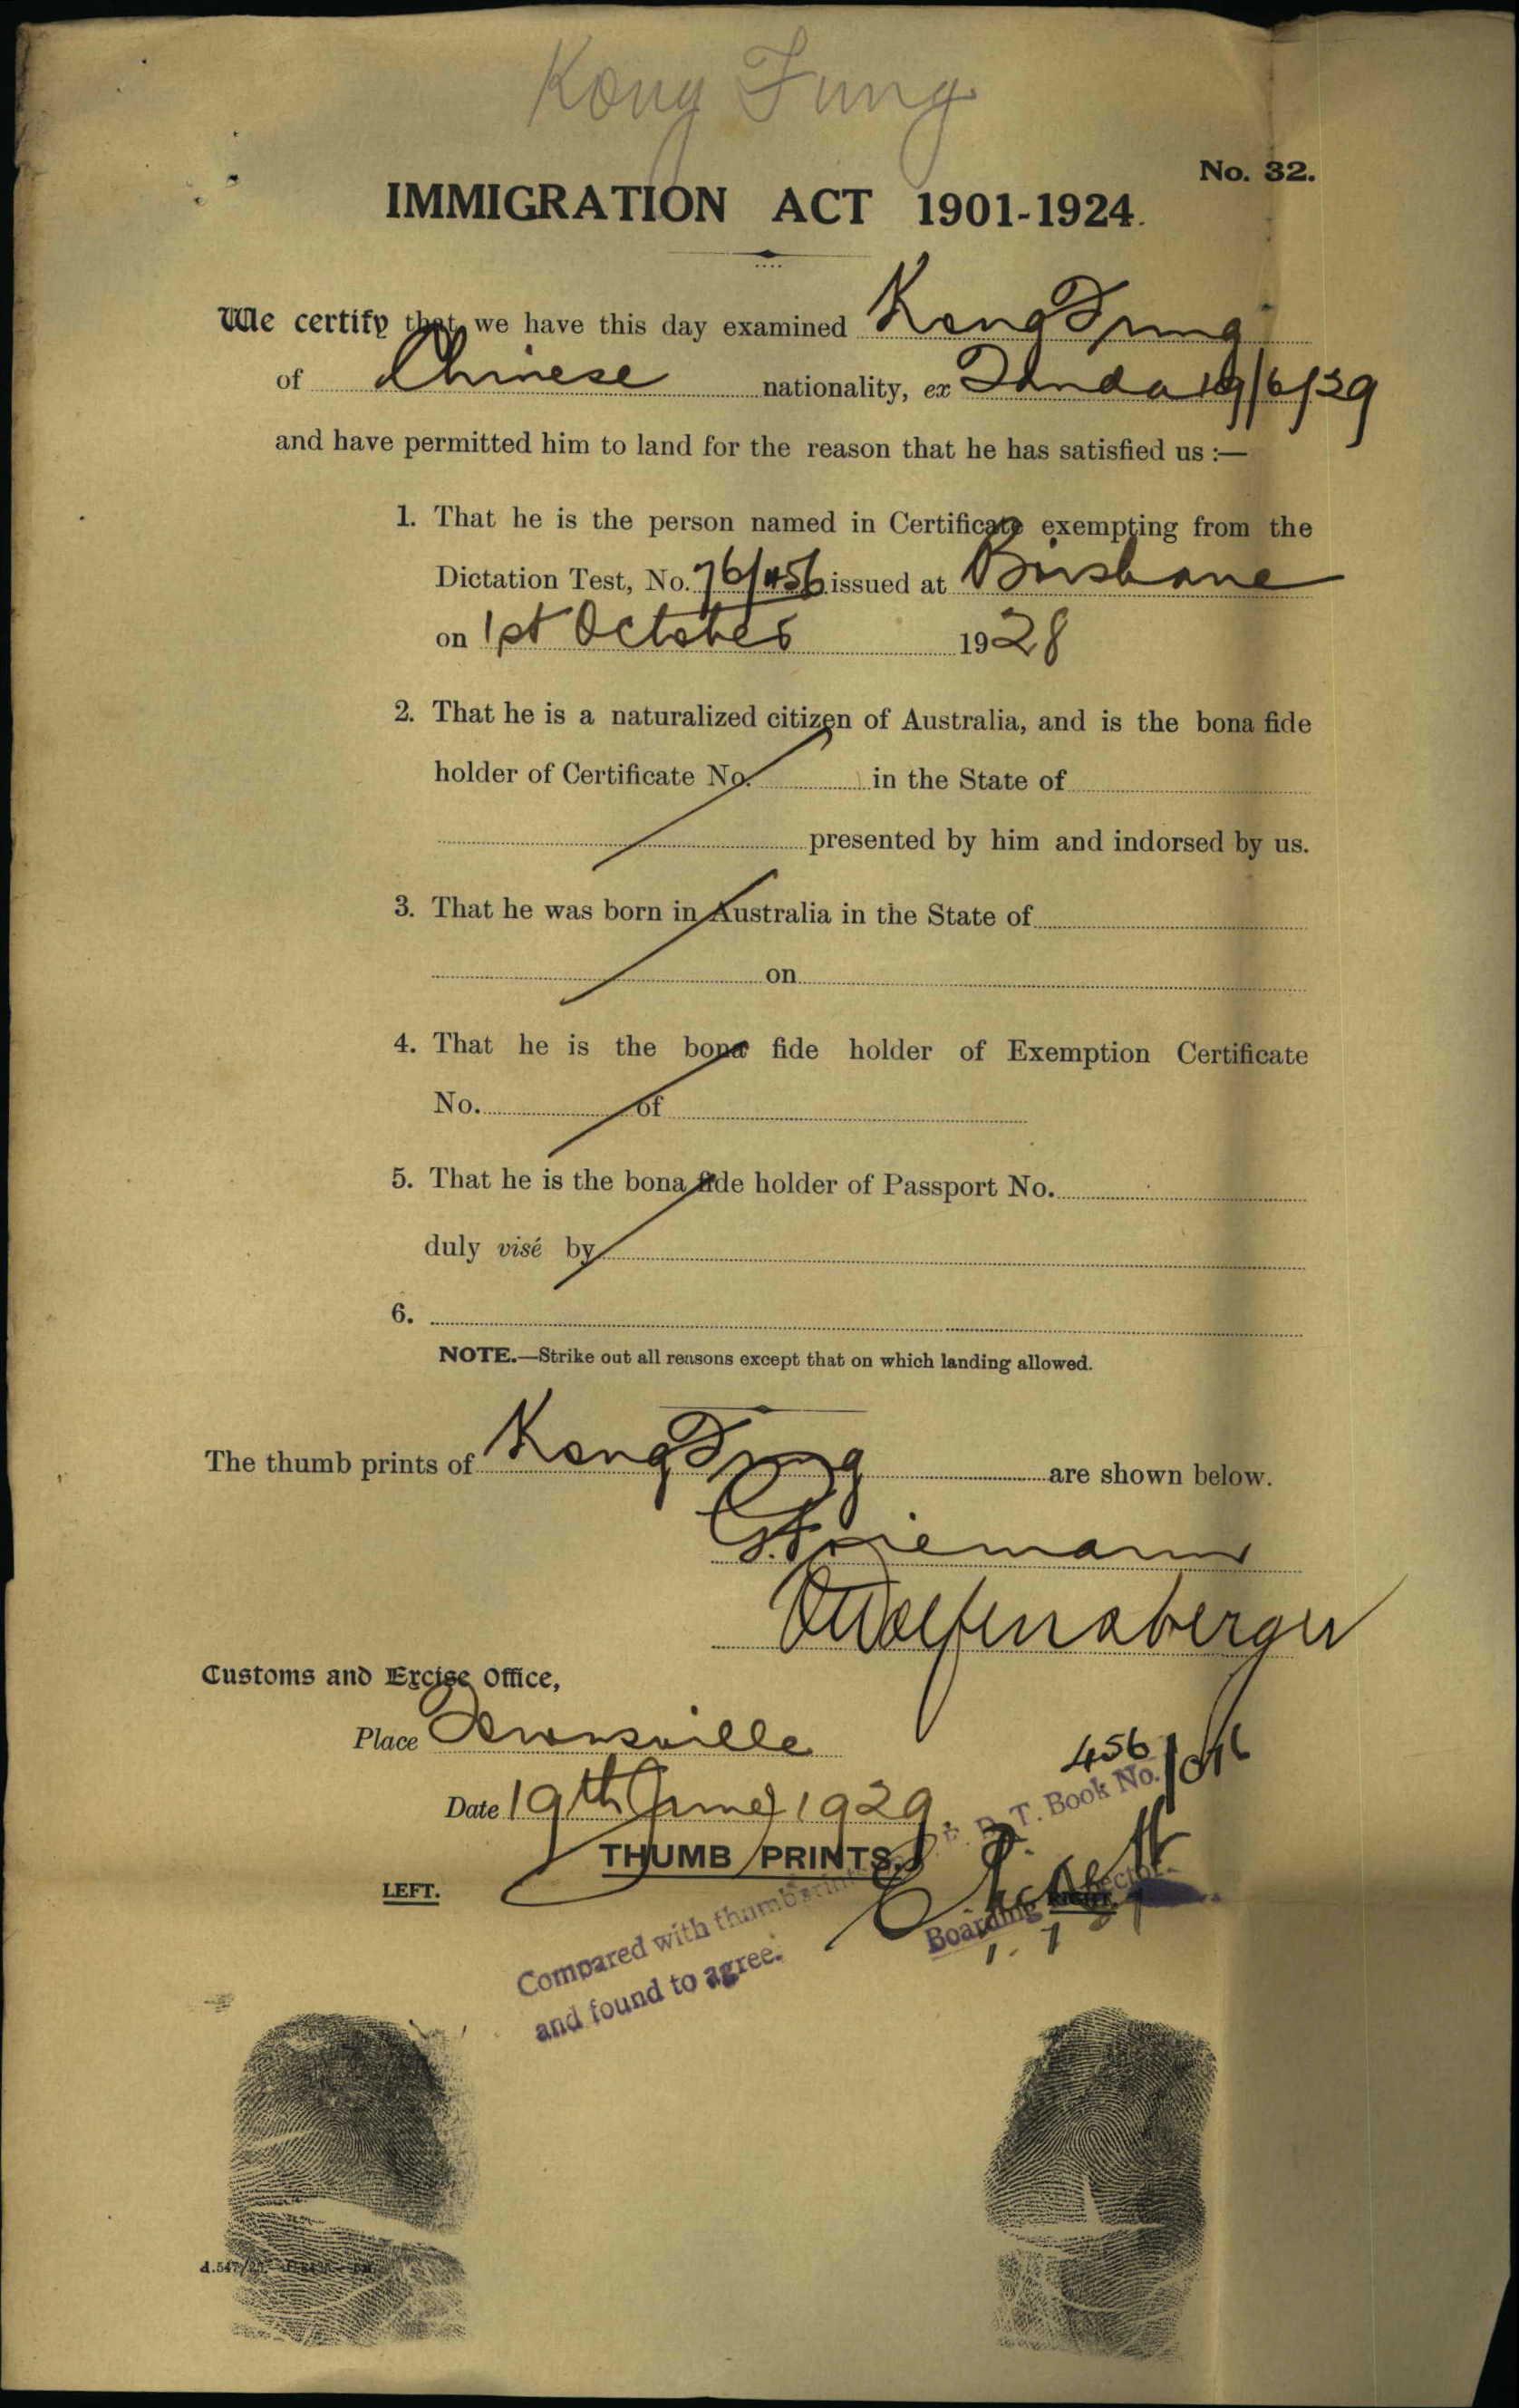 Kong Fung
No. 32.
IMMIGRATION ACT 1901-1924.
We certify that we have this day examined Kong Fung
of Chinese nationality, ex Tanda 19/6/29
and have permitted him to land for the reason that he has satisfied us :—
1. That he is the person named in Certificate exempting from the
Dictation Test, No. 76/456 issued at Brisbane
on 1st October 1928
2. That he is a naturalized citizen of Australia, and is the bona fide
holder of Certificate No. in the State of
presented by him and indorsed by us.
3. That he was born in Australia in the State of
on
4. That he is the bona fide holder of Exemption Certificate
No. of
5. That he is the bona fide holder of Passport No.
duly visé by
6.
NOTE.—Strike out all reasons except that on which landing allowed.
The thumb prints of Kong Fung are shown below.
Customs and Excise Office,
Place Townsville
456
Date 19th June 1929.
D. T. Book No.
THUMB PRINTS.
LEFT.
Compared with thumbprints
Boarding Inspector.
and found to agree.